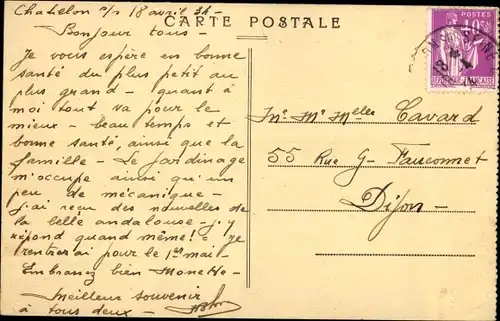 Chatillon s/s 18 avril 34-
CARTE POSTALE
Bonjour tous -
Je vous espère en bonne
santé du plus petit au
plus grand - quant à
moi tout va pour le
mieux - beau temps et
bonne santé, ainsi que la
famille - Le jardinage
m'occupe ainsi qu'un
peu de mécanique -
j'ai reçu des nouvelles de
la belle andalouse - j'y
répond quand même! - je
rentrerai pour le 1er mai -
Embrassez bien Monette -
Meilleur souvenir
à tous deux -
40c
POSTES
Mr Me Melle Cavard
55 Rue G- Fauconnet
Dijon -